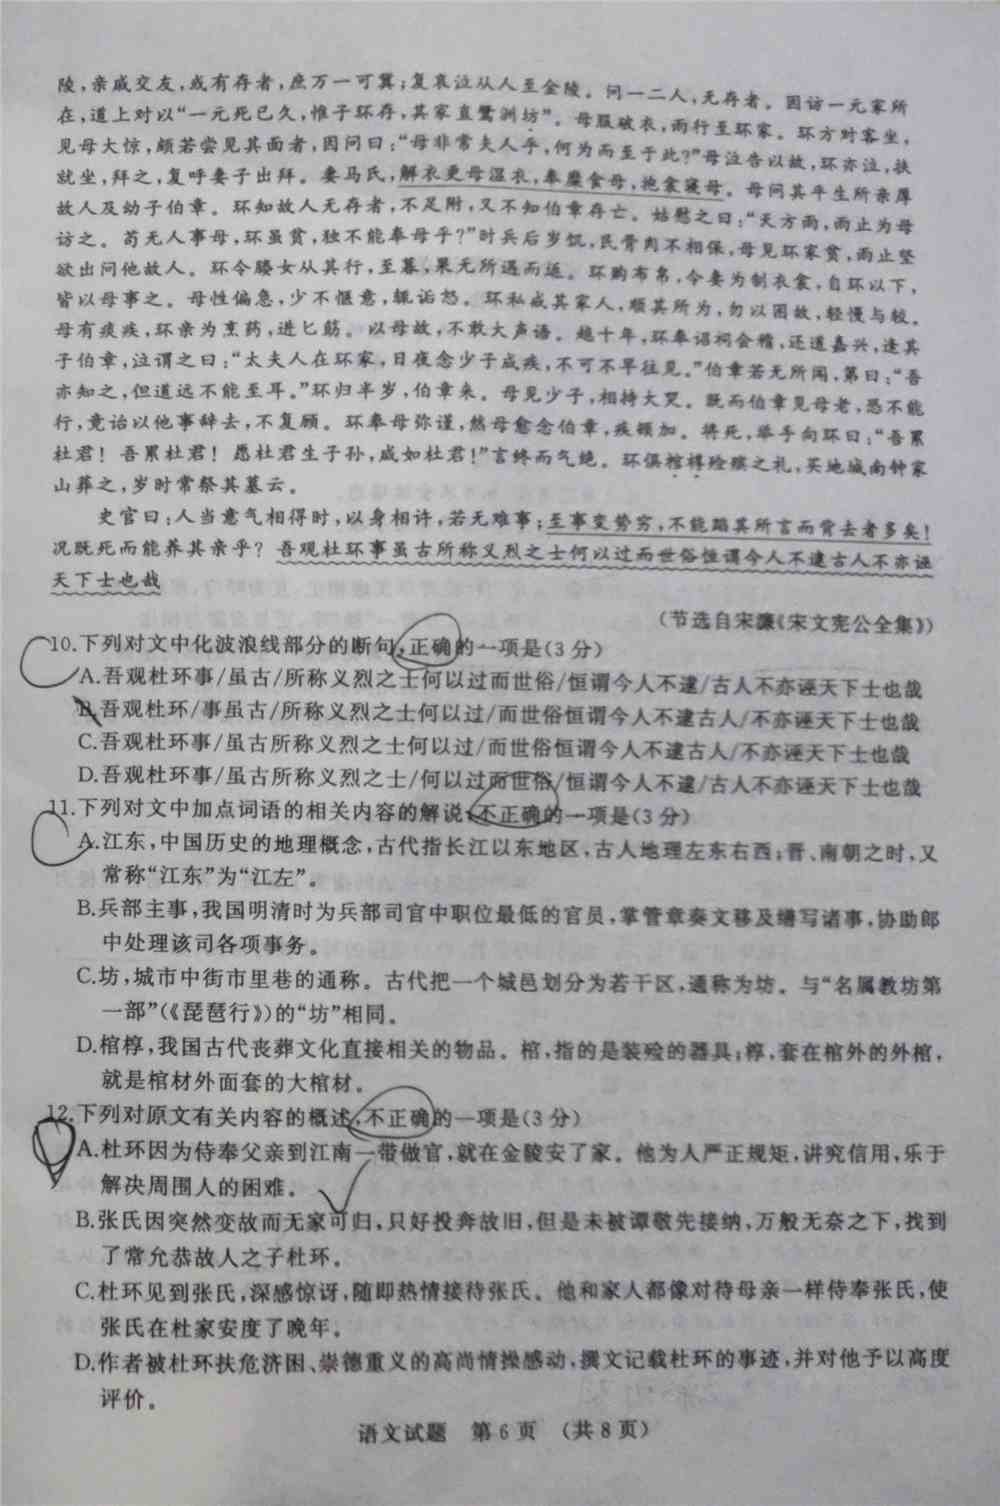 陵,亲戚交友,或有存者,庶万一可冀;复哀泣从人至金陵。问一二人,无存者。因访一元家所
在,道上对以“一元死已久,惟子环存,其家直鹭洲坊”。母服破衣,雨行至环家。环方对客坐,
见母大惊,颇若尝见其面者,因问曰:“母非常夫人乎,何为而至于此?”母泣告以故,环亦泣,扶
就坐,拜之,复呼妻子出拜。妻马氏,解衣更母湿衣,奉糜食母,抱衾寝母。母问其平生所亲厚
故人及幼子伯章。环知故人无存者,不足附,又不知伯章存亡。姑慰之曰:“天方雨,雨止为母
访之。苟无人事母,环虽贫,独不能奉母乎?”时兵后岁饥,民骨肉不相保,母见环家贫,雨止坚
欲出问他故人。环令媵女从其行,至暮,果无所遇而返。环购布帛,令妻为制衣衾,自环以下,
皆以母事之。母性偏急,少不惬意,辄诟怒。环私戒其家人,顺其所为,勿以困故,轻慢与较。
母有痰疾,环亲为烹药,进匕筋。以母故,不敢大声语。越十年,环奉诏祠会稽,还道嘉兴,逢其
子伯章,泣谓之曰:“太夫人在环家,日夜念少子成疾,不可不早往见。”伯章若无所闻,第曰:“吾
亦知之,但道远不能至耳。”环归半岁,伯章来。母见少子,相持大哭。既而伯章见母老,恐不能
行,竟诒以他事辞去,不复顾。环奉母弥谨,然母愈念伯章,疾顿加。将死,举手向环曰:“吾累
杜君!吾累杜君!愿杜君生子孙,咸如杜君!”言终而气绝。环俱棺椁殓殡之礼,买地城南钟家
山葬之,岁时常祭其墓云。
史官曰:人当意气相得时,以身相许,若无难事;至事变势穷,不能蹈其所言而背去者多矣!
况既死而能养其亲乎?吾观杜环事虽古所称义烈之士何以过而世俗恒谓今人不逮古人不亦诬
天下士也哉
(节选自宋濂《宋文宪公全集》)
10.下列对文中化波浪线部分的断句,正确的一项是(3分)
A.吾观杜环事/虽古/所称义烈之士何以过而世俗/恒谓今人不逮/古人不亦诬天下士也哉
B.吾观杜环/事虽古/所称义烈之士何以过/而世俗恒谓今人不逮古人/不亦诬天下士也哉
C.吾观杜环事/虽古所称义烈之士何以过/而世俗恒谓今人不逮古人/不亦诬天下士也哉
D.吾观杜环事/虽古所称义烈之士/何以过而世俗/恒谓今人不逮/古人不亦诬天下士也哉
11.下列对文中加点词语的相关内容的解说,不正确的一项是(3分)
A.江东,中国历史的地理概念,古代指长江以东地区,古人地理左东右西;晋、南朝之时,又
常称“江东”为“江左”。
B.兵部主事,我国明清时为兵部司官中职位最低的官员,掌管章奏文移及缮写诸事,协助郎
中处理该司各项事务。
C.坊,城市中街市里巷的通称。古代把一个城邑划分为若干区,通称为坊。与“名属教坊第
一部”(《琵琶行》)的“坊”相同。
D.棺椁,我国古代丧葬文化直接相关的物品。棺,指的是装殓的器具;椁,套在棺外的外棺,
就是棺材外面套的大棺材。
12.下列对原文有关内容的概述,不正确的一项是(3分)
A.杜环因为侍奉父亲到江南一带做官,就在金陵安了家。他为人严正规矩,讲究信用,乐于
解决周围人的困难。
B.张氏因突然变故而无家可归,只好投奔故旧,但是未被谭敬先接纳,万般无奈之下,找到
了常允恭故人之子杜环。
C.杜环见到张氏,深感惊讶,随即热情接待张氏。他和家人都像对待母亲一样侍奉张氏,使
张氏在杜家安度了晚年。
D.作者被杜环扶危济困、崇德重义的高尚情操感动,撰文记载杜环的事迹,并对他予以高度
评价。
语文试题 第6页 (共8页)